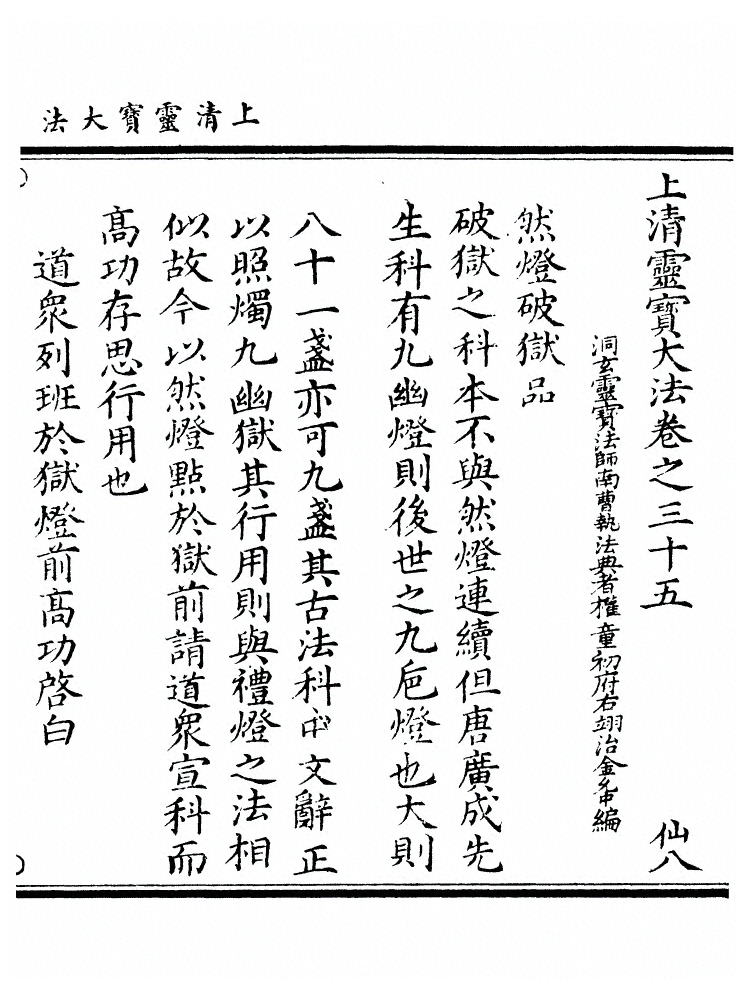 上清靈寶大法
上清靈寶大法卷之三十五　仙八
洞玄靈寶法師南曹執法典者權童初府右翊治金允中編
然燈破獄品
破獄之科本不與然燈連續但唐廣成先
生科有九幽燈則後世之九巵燈也大則
八十一盞亦可九盞其古法科中文辭正
以照燭九幽獄其行用則與禮燈之法相
似故今以然燈點於獄前請道衆宣科而
高功存思行用也
道衆列班於獄燈前高功啓白